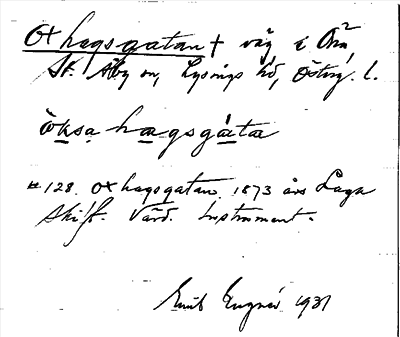 Oxhagsgatan + väg i Öna,
St. Åby sn, Lysings hd, Östrg. l.
òksa hagsgáta
#128. Oxhagsgatan. 1873 års Laga
skift. Värd. Instrument.
Emil Engner 1931